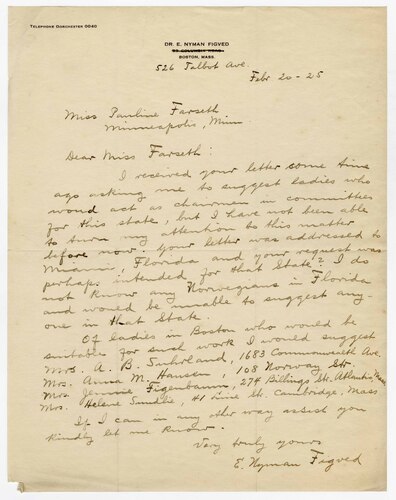 TELEPHONE DORCHESTER 0640
DR. E. NYMAN FIGVED
BOSTON, MASS.
526 Talbot Ave.
Febr 20-25
Miss Pauline Farseth
Minneapolis, Minn
Dear Miss Farseth:
I received your letter some time
ago asking me to suggest ladies who
would act as chairmen in committees
for this state, but I have not been able
to turn my attention to this matter
before now. Your letter was addressed to
Miami, Florida and your request was
perhaps intended for that State? I do
not know any Norwegians in Florida
and would be unable to suggest any-
one in that State.
Of ladies in Boston who would be
suitable for such work I would suggest
Mrs. A. B. Suhrland, 1683 Commonwealth Ave.
Mrs. Anna M. Hansen, 108 Norway Str.
Mrs. Jennie Figenbaum, 274 Billings St. Atlantic, Mass
Mrs. Helene Sundlie, 41 Line St. Cambridge, Mass
If I can in any other way assist you
kindly let me know.
Very truly yours
E. Nyman Figved